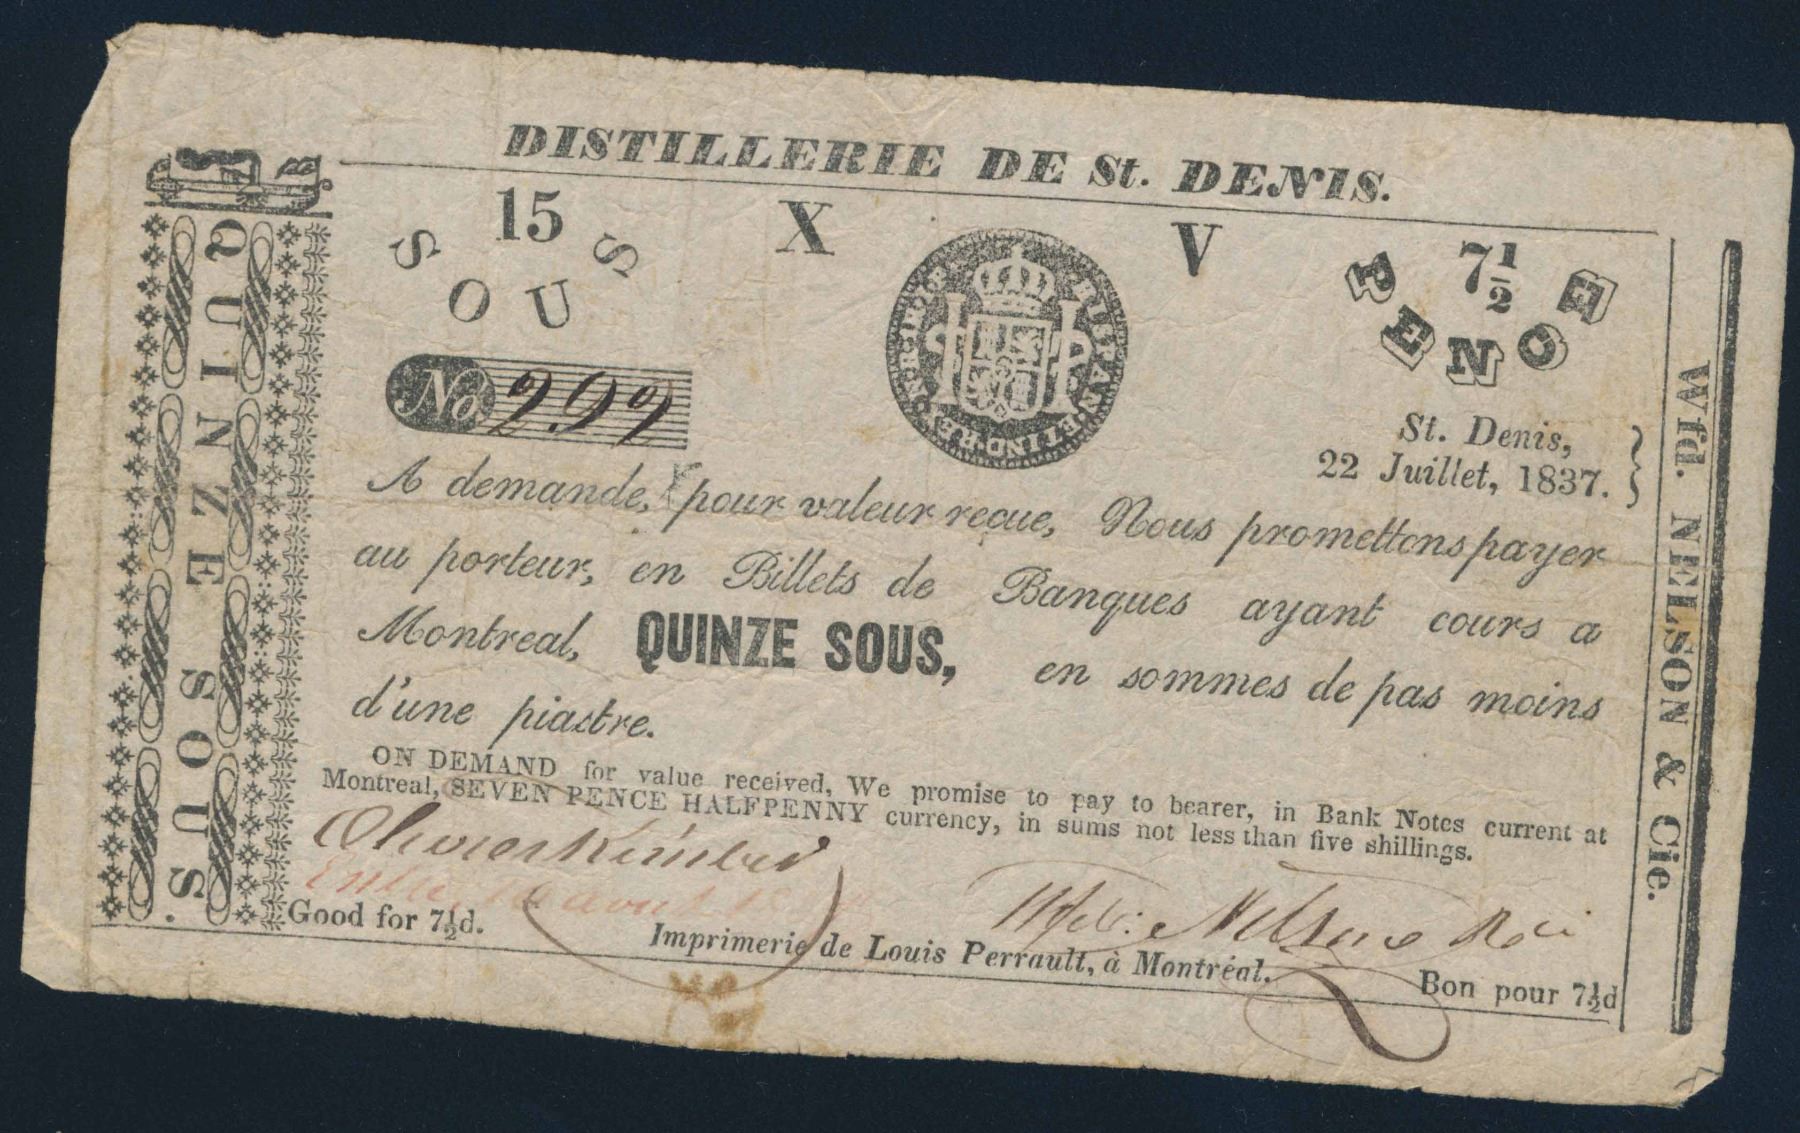 DISTILLERIE DE St. DENIS.
15 X V 7½
SOUS PENCE
No 292
St. Denis,
22 Juillet, 1837.
A demande, pour valeur reçue, Nous promettons payer
au porteur, en Billets de Banques ayant cours a
Montreal, QUINZE SOUS, en sommes de pas moins
d'une piastre.
ON DEMAND for value received, We promise to pay to bearer, in Bank Notes current at
Montreal, SEVEN PENCE HALFPENNY currency, in sums not less than five shillings.
Wfd. Nelson & Cie
Good for 7½d.
Imprimerie de Louis Perrault, à Montréal.
Bon pour 7½d
QUINZE SOUS.
Wfd. NELSON & Cie.